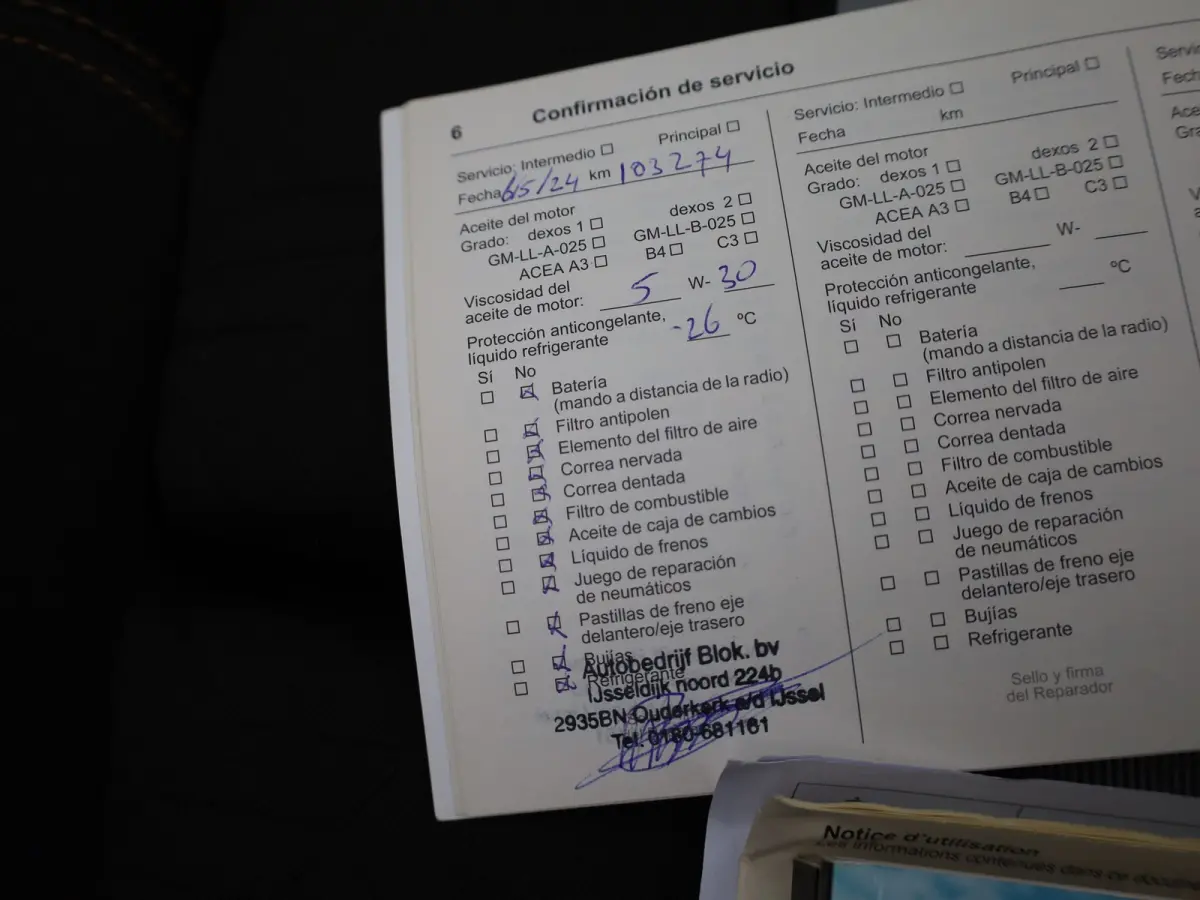 6
Confirmación de servicio
Servicio: Intermedio ☐ Principal ☐
Fecha 6/5/24 km 103274
Aceite del motor
Grado: dexos 1 ☐ dexos 2 ☐
GM-LL-A-025 ☐ GM-LL-B-025 ☐
ACEA A3 ☐ B4 ☐ C3 ☐
Viscosidad del
aceite de motor: 5 W- 30
Protección anticongelante,
líquido refrigerante -26 ºC
Sí No
☐ ☒ Batería
(mando a distancia de la radio)
☐ ☒ Filtro antipolen
☐ ☒ Elemento del filtro de aire
☐ ☒ Correa nervada
☐ ☒ Correa dentada
☐ ☒ Filtro de combustible
☐ ☒ Aceite de caja de cambios
☐ ☒ Líquido de frenos
☐ ☒ Juego de reparación
de neumáticos
☐ ☒ Pastillas de freno eje
delantero/eje trasero
☐ ☒ Bujías
☐ ☒ Refrigerante
Autobedrijf Blok. bv
IJsseldijk noord 224b
2935BN Ouderkerk a/d IJssel
Tel. 0180-681161
Servicio: Intermedio ☐ Principal ☐
Fecha km
Aceite del motor
Grado: dexos 1 ☐ dexos 2 ☐
GM-LL-A-025 ☐ GM-LL-B-025 ☐
ACEA A3 ☐ B4 ☐ C3 ☐
Viscosidad del
aceite de motor: W-
Protección anticongelante,
líquido refrigerante ºC
Sí No
☐ ☐ Batería
(mando a distancia de la radio)
☐ ☐ Filtro antipolen
☐ ☐ Elemento del filtro de aire
☐ ☐ Correa nervada
☐ ☐ Correa dentada
☐ ☐ Filtro de combustible
☐ ☐ Aceite de caja de cambios
☐ ☐ Líquido de frenos
☐ ☐ Juego de reparación
de neumáticos
☐ ☐ Pastillas de freno eje
delantero/eje trasero
☐ ☐ Bujías
☐ ☐ Refrigerante
Sello y firma
del Reparador
Notice d'utilisation
Les informations contenues dans ce